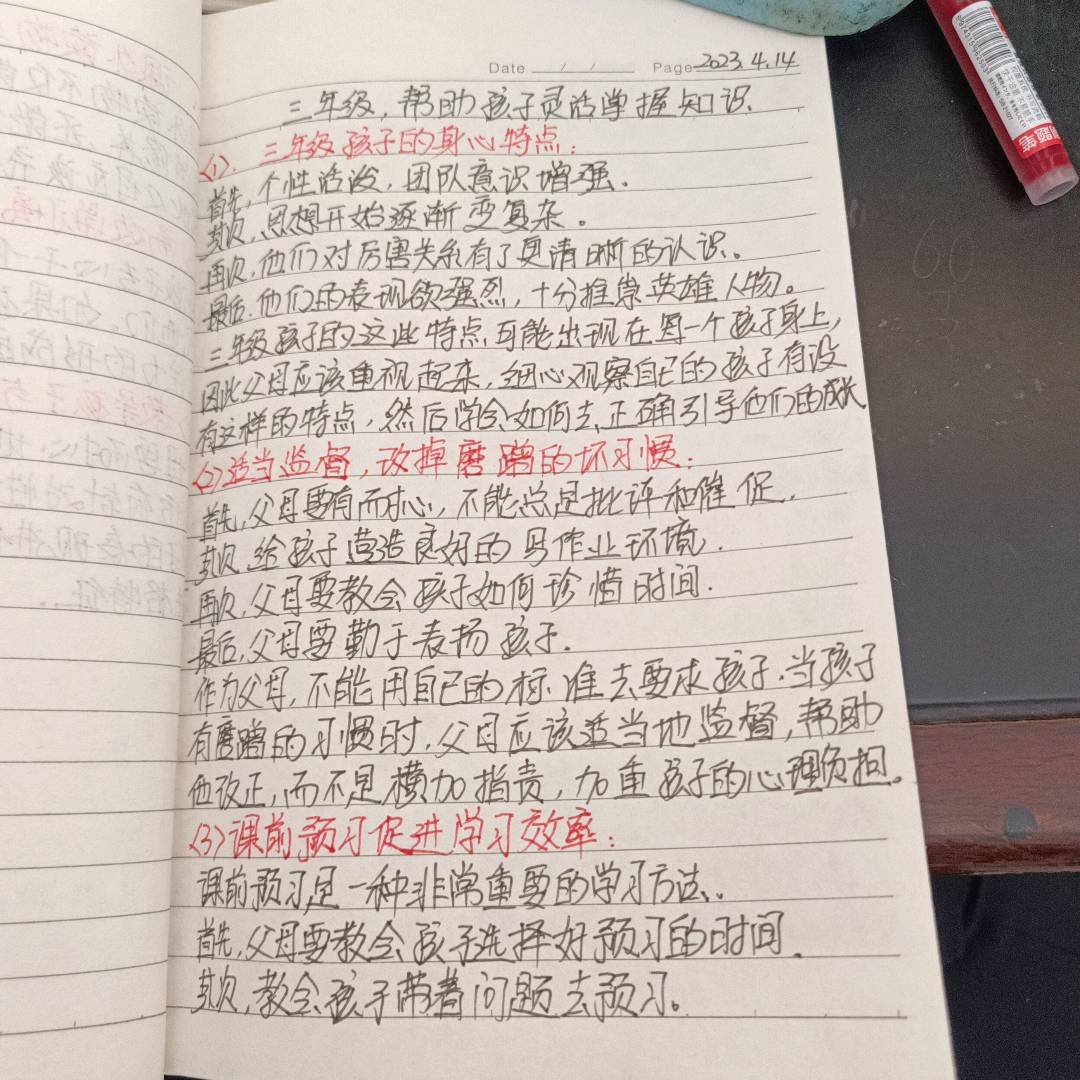 Date / / Page 2023.4.14
三年级，帮助孩子灵活掌握知识.
(1). 三年级孩子的身心特点：
首先，个性活泼，团队意识增强.
其次，思想开始逐渐变复杂。
再次，他们对厉害关系有了更清晰的认识。
最后.他们的表现欲强烈，十分推崇英雄人物。
三年级孩子的这些特点可能出现在每一个孩子身上，
因此父母应该重视起来，细心观察自己的孩子有没
有这样的特点，然后学会如何去正确引导他们的成长
(2)适当监督，改掉磨蹭的坏习惯：
首先，父母要有耐心，不能总是批评和催促.
其次，给孩子营造良好的写作业环境.
再次，父母要教会孩子如何珍惜时间.
最后，父母要勤于表扬孩子.
作为父母，不能用自己的标准去要求孩子.当孩子
有磨蹭的习惯时，父母应该适当地监督，帮助
他改正，而不是横加指责，加重孩子的心理负担。
(3)课前预习促进学习效率：
课前预习是一种非常重要的学习方法.
首先，父母要教会孩子选择好预习的时间.
其次，教会孩子带着问题去预习。
60